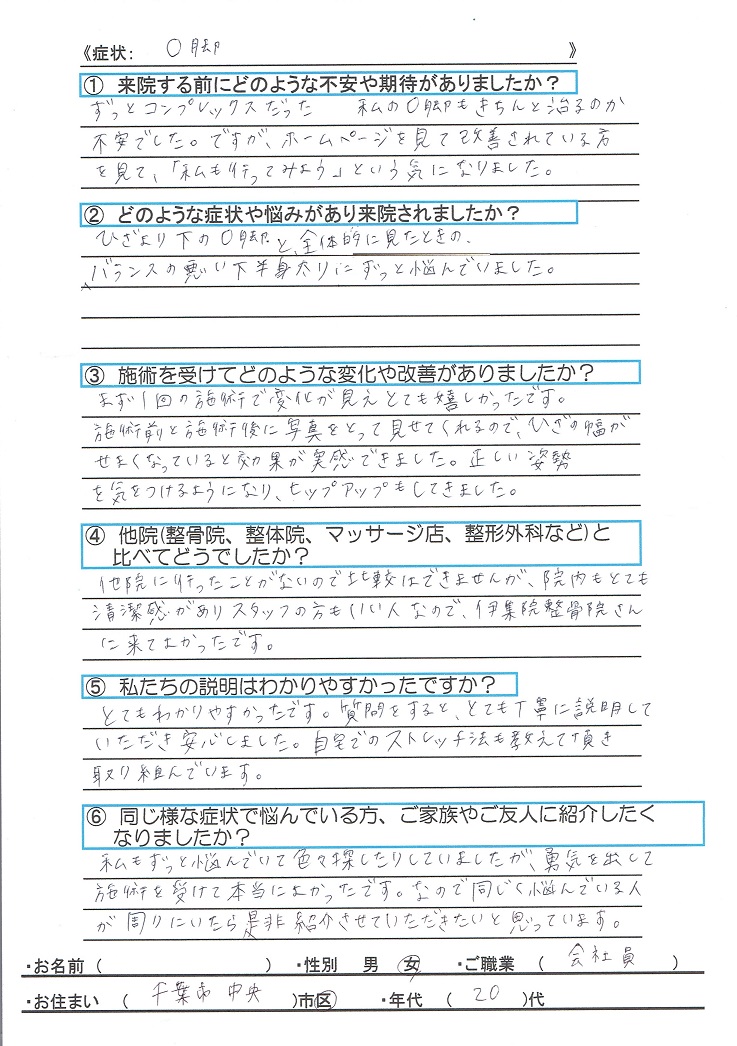 《症状： O脚 》
① 来院する前にどのような不安や期待がありましたか？
ずっとコンプレックスだった 私のO脚もきちんと治るのか
不安でした。ですが、ホームページを見て改善されている方
を見て、「私も行ってみよう」という気になりました。
② どのような症状や悩みがあり来院されましたか？
ひざより下のO脚と、全体的に見たときの、
バランスの悪い下半身太りにずっと悩んでいました。
③ 施術を受けてどのような変化や改善がありましたか？
まず1回の施術で変化が見えとても嬉しかったです。
施術前と施術後に写真をとって見せてくれるので、ひざの幅が
せまくなっていると効果が実感できました。正しい姿勢
を気をつけるようになり、ヒップアップもしてきました。
④ 他院(整骨院、整体院、マッサージ店、整形外科など)と
比べてどうでしたか？
他院に行ったことがないので比較はできませんが、院内もとても
清潔感がありスタッフの方もいい人なので、伊集院整骨院さん
に来てよかったです。
⑤ 私たちの説明はわかりやすかったですか？
とてもわかりやすかったです。質問をすると、とても丁寧に説明して
いただき安心しました。自宅でのストレッチ法も教えて頂き
取り組んでいます。
⑥ 同じ様な症状で悩んでいる方、ご家族やご友人に紹介したく
なりましたか？
私もずっと悩んでいて色々探したりしていましたが、勇気を出して
施術を受けて本当によかったです。なので同じく悩んでいる人
が周りにいたら是非紹介させていただきたいと思っています。
・お名前（ ） ・性別 男 女 ・ご職業 （ 会社員 ）
・お住まい （ 千葉市 中央 ）市区 ・年代 （ 20 ）代